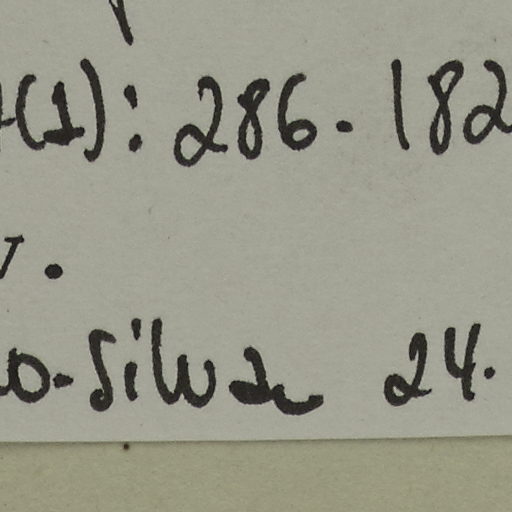 (1): 286. 182
.
o-Silva 24.